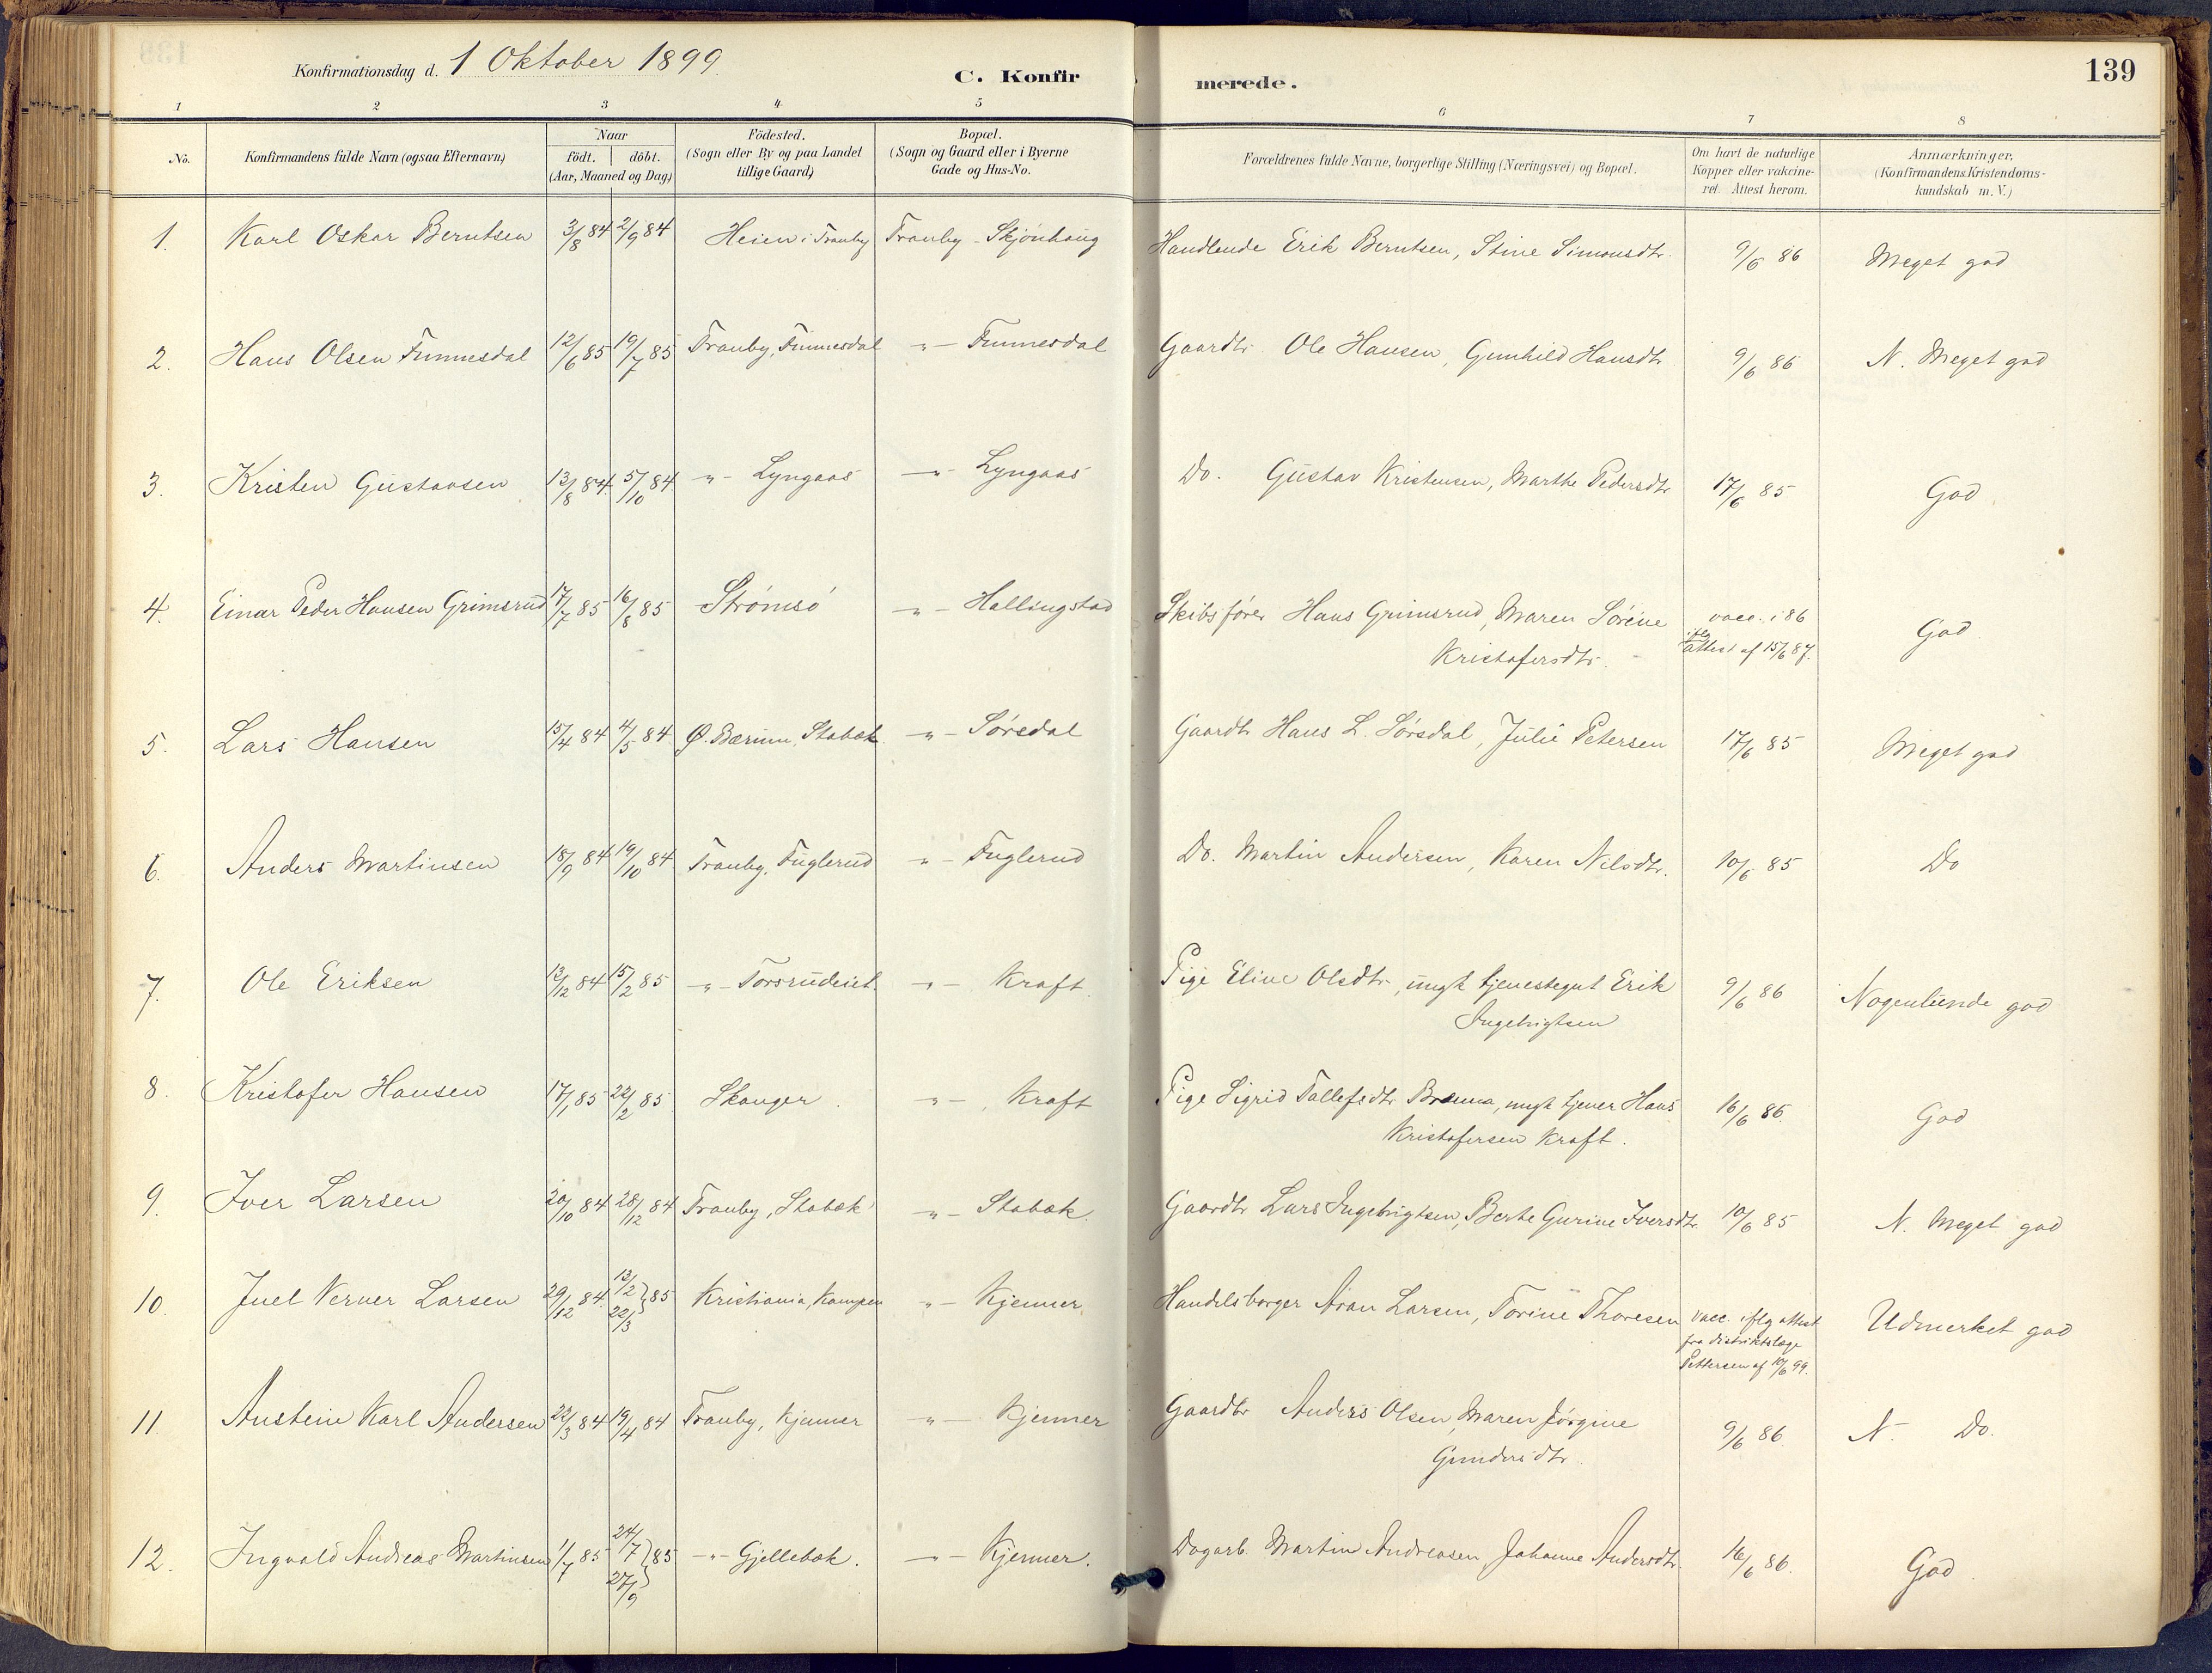 Konfirmationsdag d. 1 Oktober 1899.
C. Konfirmerede.
139
1 2 3 4 5 6 7 8
No. Konfirmandens fulde Navn (ogsaa Efternavn) Naar födt. döbt. (Aar, Maaned og Dag) Födested. (Sogn eller By og paa Landet tillige Gaard) Bopæl. (Sogn og Gaard eller i Byerne Gade og Hus-No. Forældrenes fulde Navne, borgerlige Stilling (Næringsvei) og Bopæl. Om havt de naturlige Kopper eller vakcineret. Attest herom. Anmærkninger. (Konfirmandens Kristendomskundskab m. V.)
1. Karl Oskar Berntsen 3/8 84 2/9 84 Heien i Tranby Tranby - Skjønhaug Handlende Erik Berntsen, Stine Simonsdtr. 9/6 86 Meget god
2. Hans Olsen Finnesdal 12/6 85 19/7 85 Tranby, Finnesdal "- Finnesdal Gaardbr. Ole Hansen, Gunhild Hansdtr 9/6 86 N. Meget god
3. Kristen Gustavsen 13/8 84 5/10 84 "- Lyngaas "- Lyngaas Do. Gustav Kristensen, Marthe Pedersdtr 17/6 85 God.
4. Einar Peder Hansen Grimsrud 17/7 85 16/8 85 Strømsö "- Hallingstad Skibsfører Hans Grimsrud, Maren Sørine
Kristofersdtr. vacc. i 86
iflg attest af 15/6 87. God
5. Lars Hansen 15/4 84 4/5 84 Ø. Bærum, Stabæk "- Sørsdal Gaardbr Hans L. Sørsdal, Julie Petersen 17/6 85 Meget god
6. Anders Martinsen 18/9 84 19/10 84 Tranby, Fuglerud "- Fuglerud Do. Martin Andersen, Karen Nilsdtr. 10/6 85 Do
7. Ole Eriksen 13/12 84 15/2 85 "- Torsrudeiet. "- Kraft. Pige Eline Olsdtr, ungk tjenestegut Erik
Ingebrigtsen 9/6 86 Nogenlunde god
8. Kristofer Hansen 17/1 85 22/2 85 Skauger. "- Kraft Pige Sigrid Tallefsdtr Brenna, ungk tjener Hans
Kristofersen Kraft. 16/6 86. God
9. Iver Larsen 20/10 84 28/12 84 Tranby, Stabæk "- Stabæk. Gaardbr Lars Ingebrigtsen, Berte Gurine Iversdtr. 10/6 85 N. Meget god
10. Juel Verner Larsen 29/12 84 13/2 22/3 } 85 Kristiania, Kampen "- Kjenner. Handelsborger Aron Larsen, Torine Thoresen vacc. iflg attest
fra distriktslæge
Pettersen af 10/6 99. Udmerket god
11. Austein Karl Andersen 22/3 84 19/4 84 Tranby, Kjenner "- Kjenner Gaardbr Anders Olsen, Maren Jørgine
Gundersdtr. 9/6 86 N. Do.
12. Ingvald Andreas Martinsen 1/7 85 24/7 27/9 } 85 "- Gjellebæk. "- Kjenner. Dagarb. Martin Andreasen, Johanne Andersdtr. 16/6 86. God